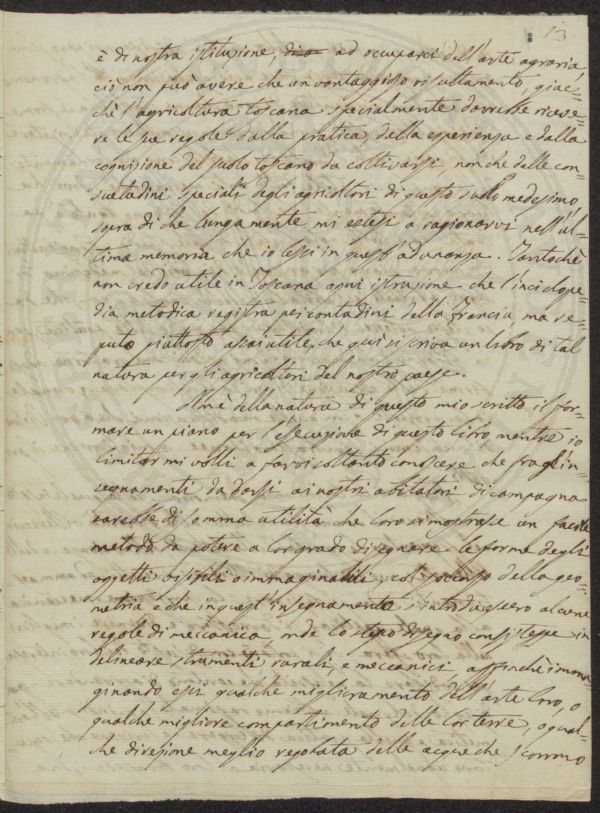 13
è di nostra istituzione, dico ad occuparci dell'arte agraria,
ciò non può avere che un vantaggioso risultamento, giac=
chè l'agricoltura toscana specialmente dovrebbe riceve=
re le sue regole dalla pratica, dalla esperienza e dalla
cognizione del suolo toscano da coltivarsi, non che dalle con=
suetudini speciali degli agricoltori di questo suolo medesimo
sopra di che lungamente mi estesi a ragionarvi nell'ul=
tima memoria che io lessi in quest'adunanza. Tantochè
non credo utile in Toscana ogni istruzione che l'inciclope=
dia metodica registra pei contadini della Francia, ma re=
puto piuttosto assai utile, che qui si scriva un libro di tal
natura per gli agricoltori del nostro paese.
Non è della natura di questo mio scritto il for=
mare un piano per l'esecuzione di questo libro, mentre io
limitar mi volli a farvi soltanto conoscere che fra gl'in=
segnamenti da darsi ai nostri abitatori di campagna
sarebbe di somma utilità che loro si mostrasse un facile
metodo da potere a lor grado disegnare le forme degli
oggetti visibili o immaginabili, col soccorso della geo=
metria e che in quest'insegnamento s'introducessero alcune
regole di meccanica, onde lo stesso disegno consistesse in
delineare strumenti rurali, e meccanici affinchè imma=
ginando essi qualche miglioramento dell'arte loro, o
qualche migliore compartimento delle lor terre, o qual=
che direzione meglio regolata delle acque che scorrono